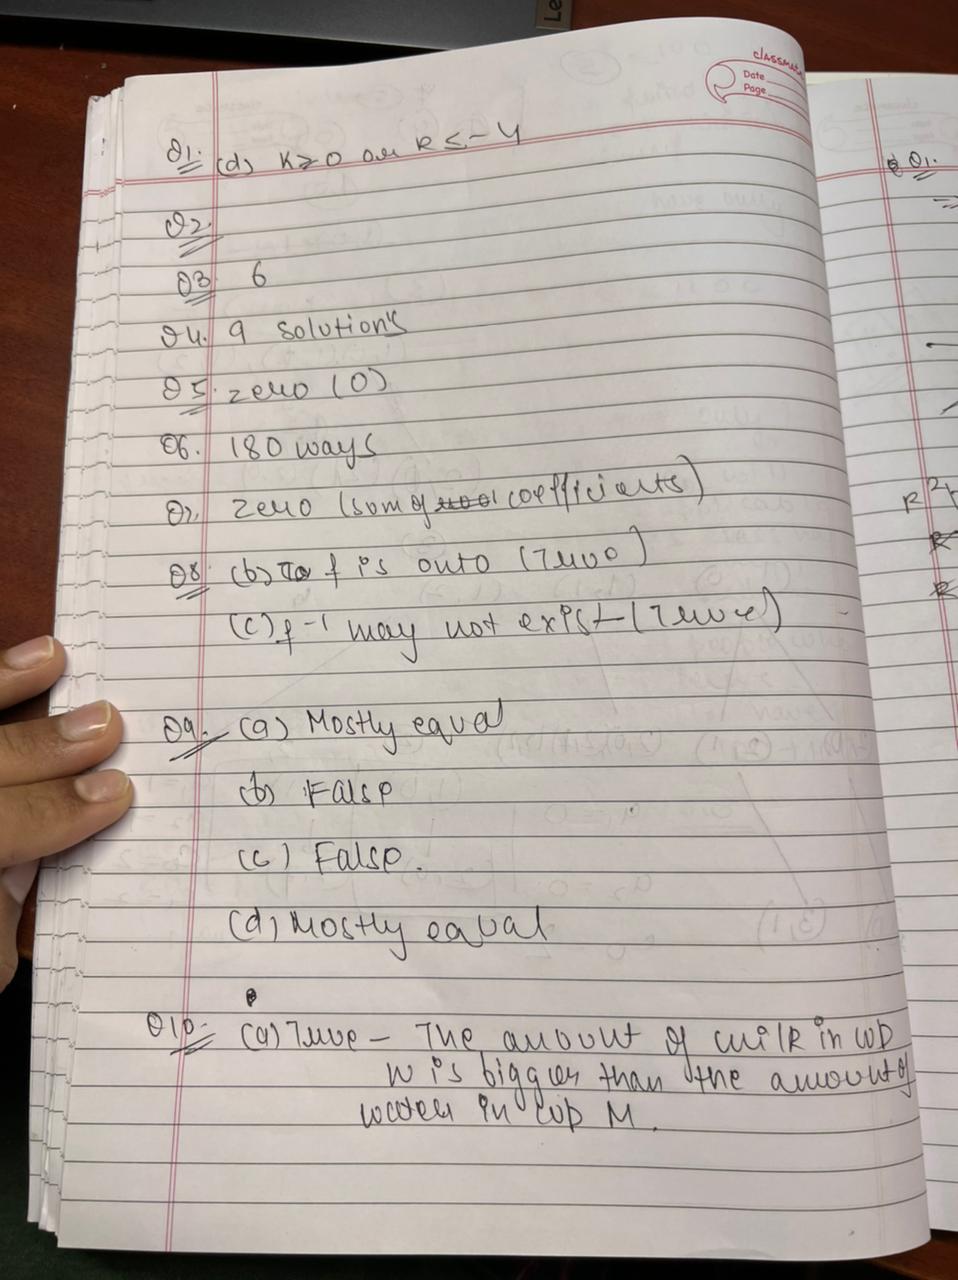 Le
classmate
Date
Page
Q1. (d) K≥0 or K≤-4
Q2.
Q3. 6
Q4. 9 solution's
Q5. zero (0)
Q6. 180 ways
Q7. zero (sum of coefficients)
Q8. (b) f is onto (True)
(c) f⁻¹ may not exist (True)
Q9. (a) Mostly equal
(b) False
(c) False.
(d) Mostly equal
Q10. (a) True – The amount of milk in cup
W is bigger than the amount of
water in cup M.
Q1.